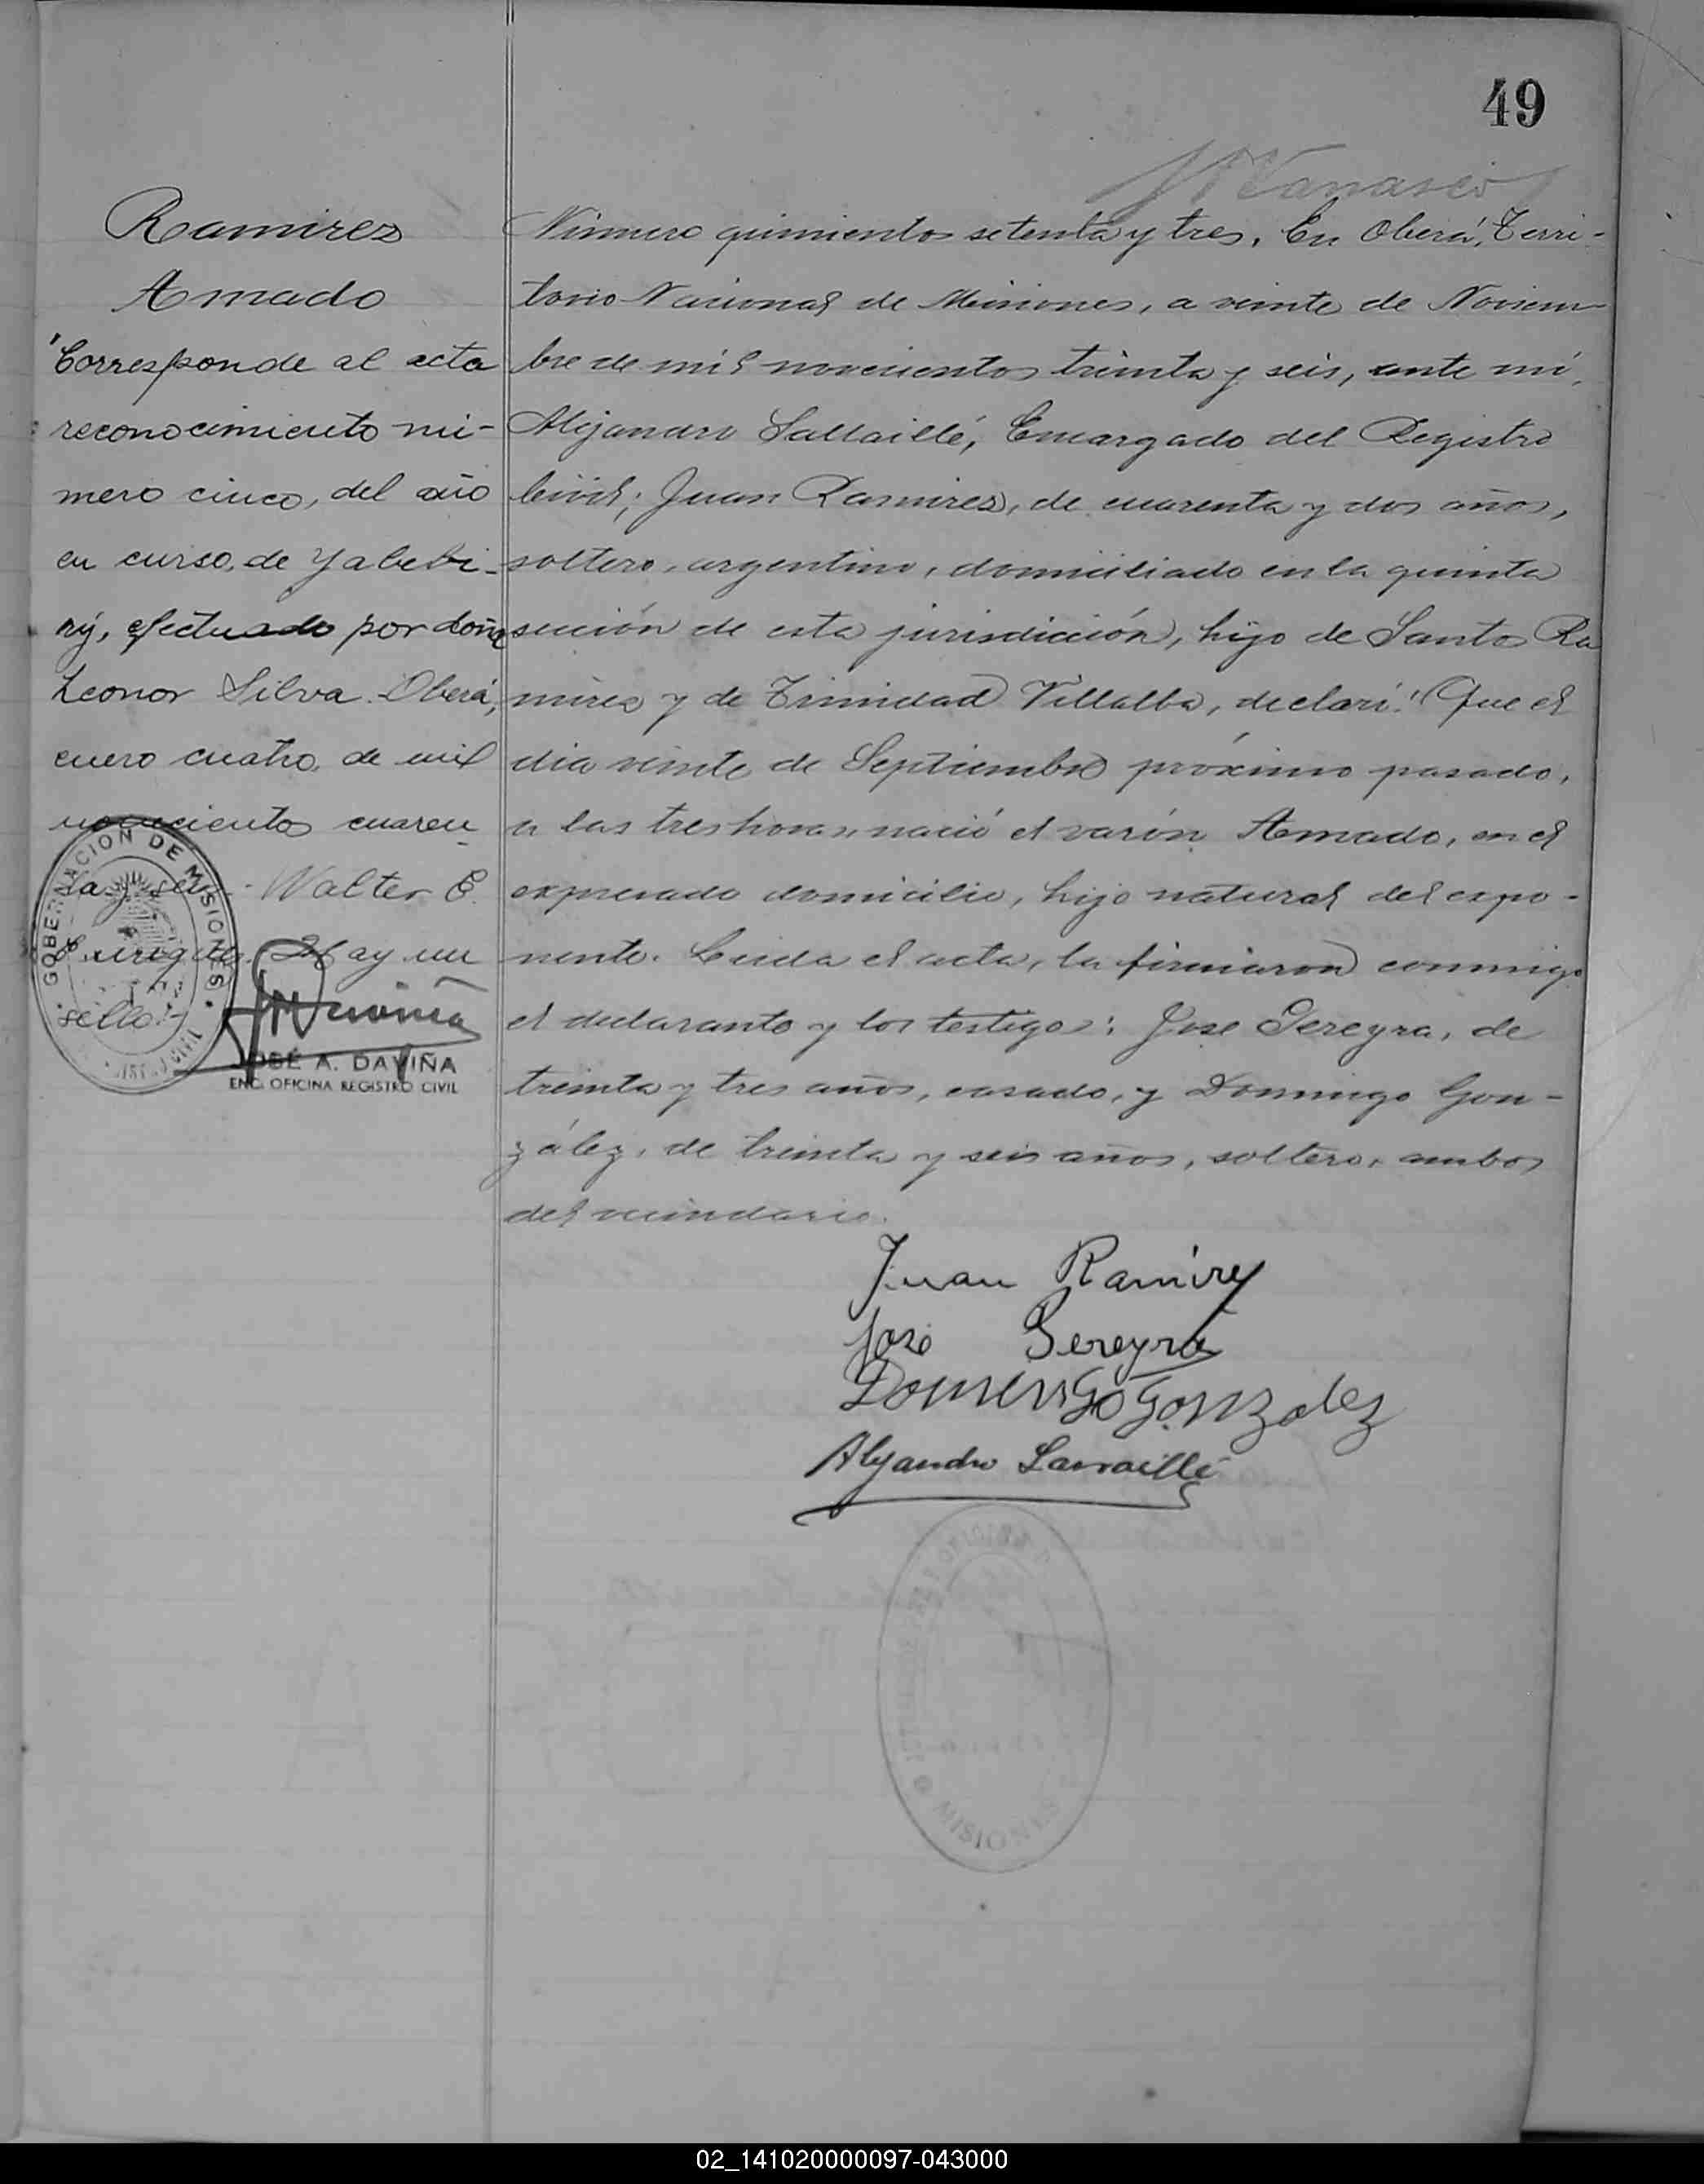 49
Ramirez
Amado
"Corresponde al acta
reconocimiento nú-
mero cinco, del año
en curso, de Yabebi-
rý, efectuado por doña
Leonor Silva. Oberá,
enero cuatro, de mil
novecientos cuaren-
ta y seis.- Walter E.
Hay un
sello.-
GOBERNACION DE MISIONES
JOSÉ A. DAVIÑA
ENC. OFICINA REGISTRO CIVIL
Número quinientos setenta y tres. En Oberá, Terri-
torio Nacional de Misiones, a veinte de Noviem-
bre de mil novecientos treinta y seis, ante mí,
Alejandro, Encargado del Registro
Civil; Juan Ramirez, de cuarenta y dos años,
soltero, argentino, domiciliado en la quinta
sección de esta jurisdicción, hijo de Santos Ra
mirez y de Trinidad Villalba, declaró: Que el
día veinte de Septiembre próximo pasado,
a las tres horas, nació el varón Amado, en el
expresado domicilio, hijo natural del expo-
nente. Leída el acta, la firmaron conmigo
el declarante y los testigos: Jose Pereyra, de
treinta y tres años, casado, y Domingo Gon-
zález, de treinta y seis años, soltero, ambos
del vecindario.
Juan Ramirez
José Pereyra
Domingo Gonzalez
Alejandro
MISIONES
02_141020000097-043000